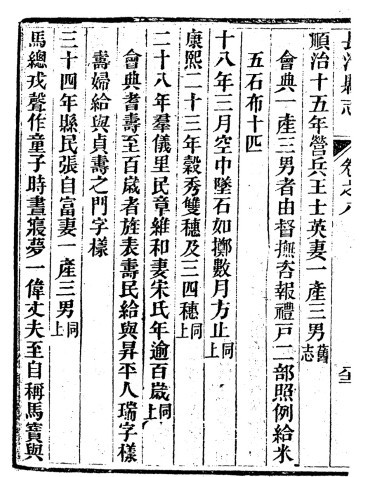 長治縣志 卷之八
順治十五年營兵王士英妻一產三男舊志
會典一產三男者由督撫咨報禮戶二部照例給米
五石布十匹
十八年三月空中墜石如擲數月方止同上
康熙二十三年穀秀雙穗及三四穗同上
二十八年羣儀里民章維和妻宋氏年逾百歲同上
會典耆壽至百歲者旌表壽民給與昇平人瑞字樣
壽婦給與貞壽之門字樣
三十四年縣民張自富妻一產三男同上
馬總戎聲作童子時晝寢夢一偉丈夫至自稱馬寶與